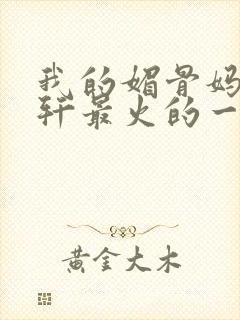 我的媚骨妈
轩最火的一
黄金大木